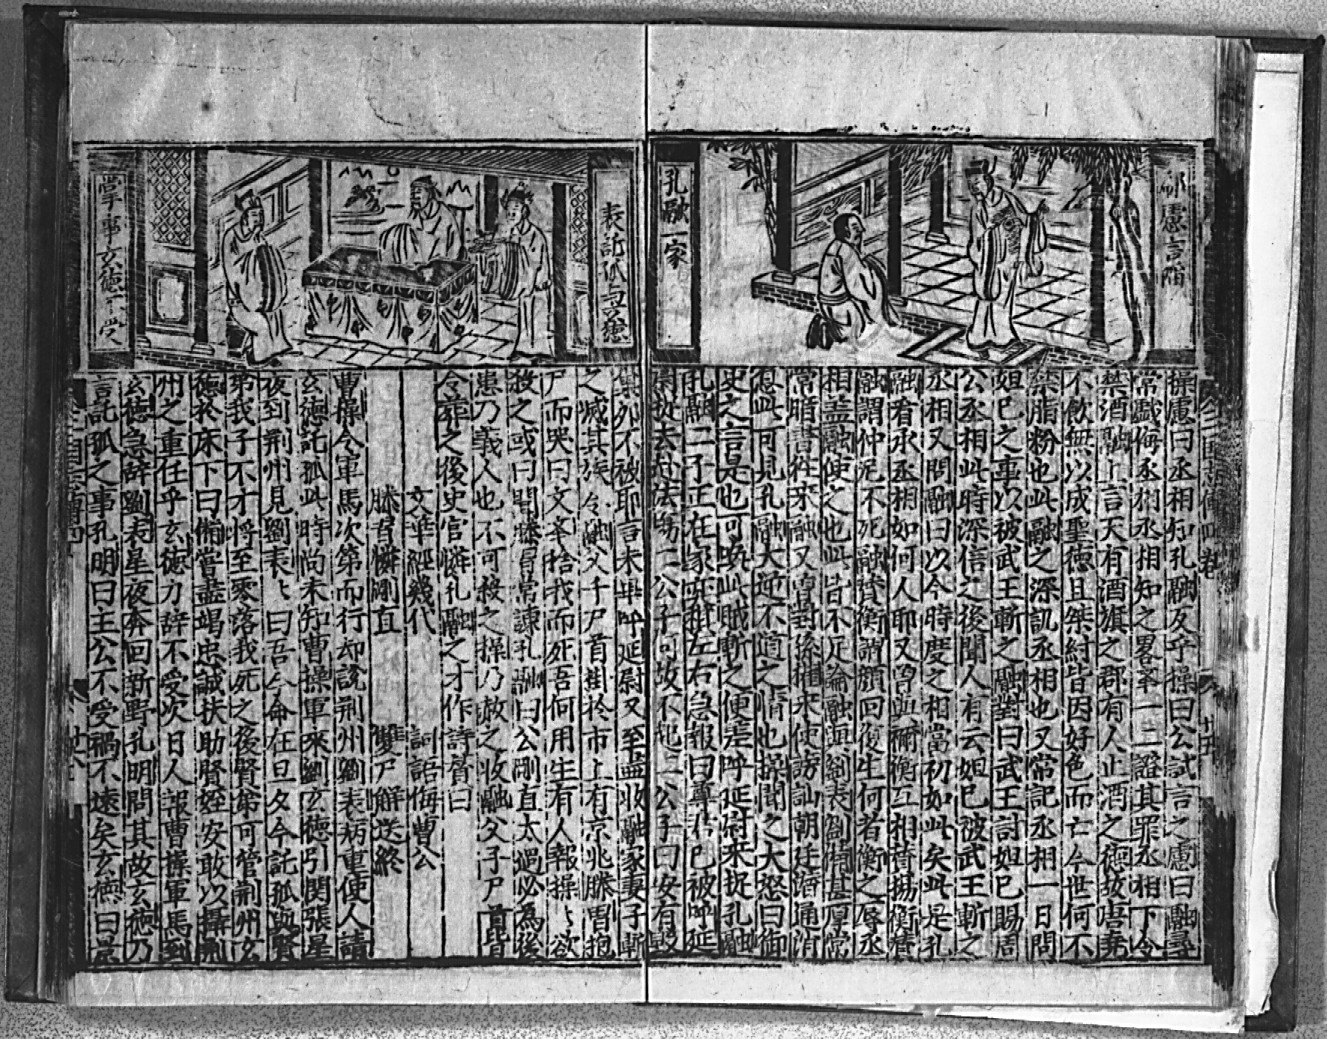 郗慮言譖
孔融一家
操慮曰丞相知孔融友乎操曰公試言之慮曰融尋
常戲侮丞相丞相知之畧举一二證其罪丞相下令
禁酒融上言天有酒旗之郡有人止酒之德故唐尭
不飲無以成聖德且桀紂皆因好色而亡今世何不
禁脂粉也此融之深訊丞相也又常記丞相一日問
妲己之事以被武王斬之融對曰武王討妲己賜周
公丞相此時深信之後聞人有云妲己被武王斬之
丞相又問融曰以今時度之相當初如此矣此是孔
融看承丞相如何人耶又曾與禰衡互相賛揚衡賛
融謂仲尼不死融賛衡謂顔回復生何者衡之辱丞
相盖融使之也此皆不足論融與劉表劉備甚厚常
常脂書往來融又曾對孫權來使謗訕朝廷潜通消
息此可見孔融大逆不道之情也操聞之大怒曰御
史之言是也可喚此賊斬之便差呼延尉來捉孔融
尉捉去赴法場二公子何故不起二公子曰安有毀
孔融二子正在家奕棋左右急報曰尊君已被呼延
表託孤与玄德
掌事玄德不受
巢卵不破耶言未畢呼延尉又至盡收融家妻子斬
之滅其族令融父子尸首衐於市上有京兆滕習抱
尸而哭曰文举捨我而死吾何用生有人報操〻欲
殺之或曰聞滕習常諫孔融曰公剛直太過必為後
患乃義人也不可殺之操乃赦之收融父子尸首皆
令葬之後史官憐孔融之才作詩賛曰
文華經幾代　詞語侮曹公
滕習憐剛直　雙尸解送終
曹操令軍馬次第而行却說荆州劉表病重使人請
玄德託孤此時尚未知曹操軍來劉玄德引関張星
夜到荆州見劉表〻曰吾今命在旦夕今託孤與賢
弟我子不才將至零落我死之後賢弟可管荆州玄
德於床下曰備當盡竭忠誠扶助賢姪安敢以攝荆
州之重任乎玄德力辞不受次日人報曹操軍馬到
玄德急辞劉表星夜奔回新野孔明問其故玄德乃
言託孤之事孔明曰主公不受禍不遠矣玄德曰景